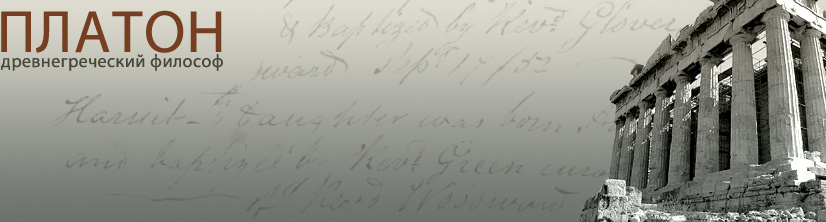 ПЛАТОН
древнегреческий философ
& baptized by Revd. Glover
ward Sept 17/52
Harriet daughter was born
and baptized by Revd. Green
of Woodward